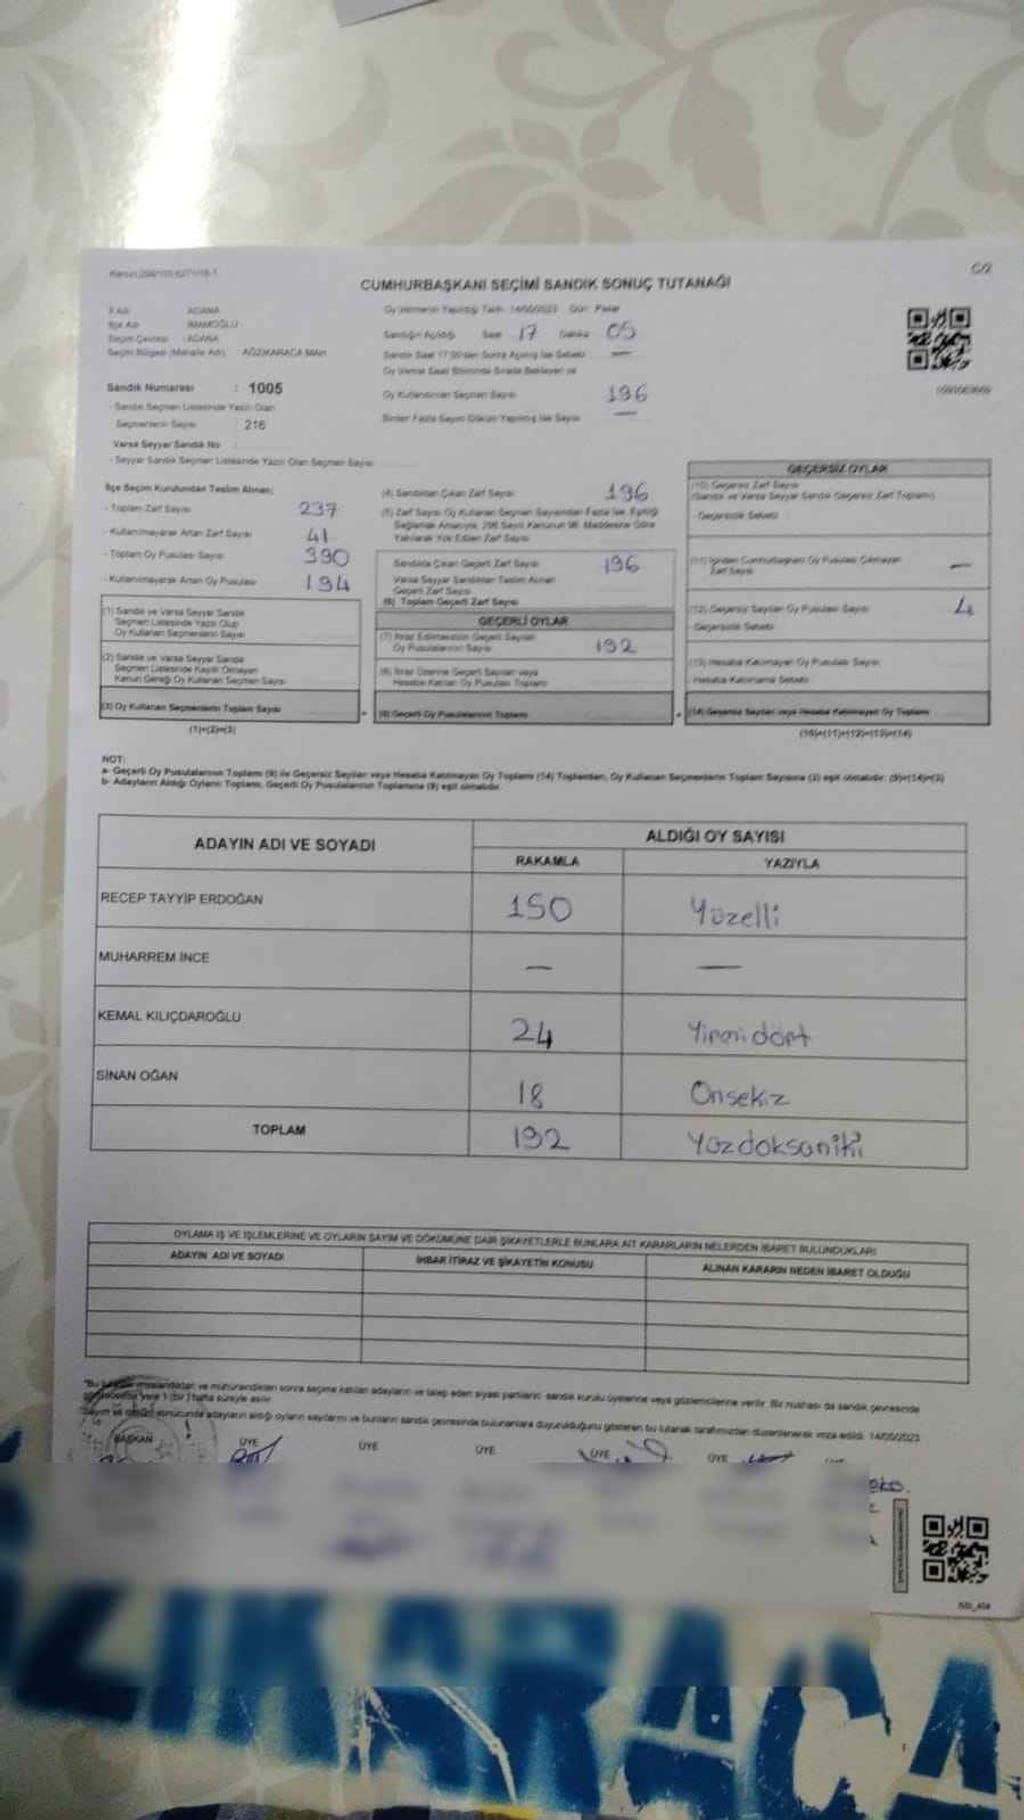 C/2
CUMHURBAŞKANI SEÇİMİ SANDIK SONUÇ TUTANAĞI
İl Adı : ADANA
İlçe Adı : İMAMOĞLU
Seçim Çevresi : ADANA
Seçim Bölgesi (Mahalle Adı) : AĞZIKARACA MAH.
Oy Vermenin Yapıldığı Tarih: 14/05/2023 Gün: Pazar
Sandığın Açıldığı Saat 17 Dakika 05
Sandık Saat 17:00'den Sonra Açılmış İse Sebebi —
Oy Verme Saati Bitiminde Sırada Bekleyen ve
Oy Kullandırılan Seçmen Sayısı 196
Birden Fazla Sayım Döküm Yapılmış İse Sayısı —
Sandık Numarası : 1005
- Sandık Seçmen Listesinde Yazılı Olan
Seçmenlerin Sayısı : 216
Varsa Seyyar Sandık No
- Seyyar Sandık Seçmen Listesinde Yazılı Olan Seçmen Sayısı
İlçe Seçim Kurulundan Teslim Alınan;
- Toplam Zarf Sayısı 237
- Kullanılmayarak Artan Zarf Sayısı 41
- Toplam Oy Pusulası Sayısı 390
- Kullanılmayarak Artan Oy Pusulası 194
(1) Sandık ve Varsa Seyyar Sandık
Seçmen Listesinde Yazılı Olup
Oy Kullanan Seçmenlerin Sayısı
(2) Sandık ve Varsa Seyyar Sandık
Seçmen Listesinde Kaydı Olmayan
Kanun Gereği Oy Kullanan Seçmen Sayısı
(3) Oy Kullanan Seçmenlerin Toplam Sayısı
(1)+(2)=(3)
(4) Sandıktan Çıkan Zarf Sayısı 196
(5) Zarf Sayısı Oy Kullanan Seçmen Sayısından Fazla İse, Eşitliği
Sağlamak Amacıyla, 298 Sayılı Kanunun 98. Maddesine Göre
Yakılarak Yok Edilen Zarf Sayısı
Sandıkta Çıkan Geçerli Zarf Sayısı 196
Varsa Seyyar Sandıktan Teslim Alınan
Geçerli Zarf Sayısı
(6) Toplam Geçerli Zarf Sayısı
GEÇERLİ OYLAR
(7) İtiraz Edilmeksizin Geçerli Sayılan
Oy Pusulalarının Sayısı 192
(8) İtiraz Üzerine Geçerli Sayılan veya
Hesaba Katılan Oy Pusulası Toplamı
(9) Geçerli Oy Pusulalarının Toplamı
GEÇERSİZ OYLAR
(10) Geçersiz Zarf Sayısı
(Sandık ve Varsa Seyyar Sandık Geçersiz Zarf Toplamı)
- Geçersizlik Sebebi
(11) İçinden Cumhurbaşkanı Oy Pusulası Çıkmayan
Zarf Sayısı —
(12) Geçersiz Sayılan Oy Pusulası Sayısı 4
- Geçersizlik Sebebi
(13) Hesaba Katılmayan Oy Pusulası Sayısı
- Hesaba Katılmama Sebebi
(14) Geçersiz Sayılan veya Hesaba Katılmayan Oy Toplamı
(10)+(11)+(12)+(13)=(14)
NOT:
a- Geçerli Oy Pusulalarının Toplamı (9) ile Geçersiz Sayılan veya Hesaba Katılmayan Oy Toplamı (14) Toplamları, Oy Kullanan Seçmenlerin Toplam Sayısına (3) eşit olmalıdır. (9)+(14)=(3)
b- Adayların Aldığı Oyların Toplamı, Geçerli Oy Pusulalarının Toplamına (9) eşit olmalıdır.
ADAYIN ADI VE SOYADI
ALDIĞI OY SAYISI
RAKAMLA YAZIYLA
RECEP TAYYİP ERDOĞAN 150 Yüzelli
MUHARREM İNCE — —
KEMAL KILIÇDAROĞLU 24 Yirmidört
SİNAN OĞAN 18 Onsekiz
TOPLAM 192 Yüzdoksaniki
OYLAMA İŞ VE İŞLEMLERİNE VE OYLARIN SAYIM VE DÖKÜMÜNE DAİR ŞİKAYETLERLE BUNLARA AİT KARARLARIN NELERDEN İBARET BULUNDUKLARI
ADAYIN ADI VE SOYADI İHBAR İTİRAZ VE ŞİKAYETİN KONUSU ALINAN KARARIN NEDEN İBARET OLDUĞU
imzalandıktan ve mühürlendikten sonra seçime katılan adayların ve talep eden siyasi partilerin sandık kurulu üyelerine veya gözlemcilerine verilir. Bir nüshası da sandık çevresinde
yere 1 (bir) hafta süreyle asılır.
Sayım ve döküm sonucunda adayların aldığı oyların sayılarını ve bunların sandık çevresinde bulunanlara duyurulduğunu gösteren bu tutanak tarafımızdan düzenlenerek imza edildi. 14/05/2023
BAŞKAN ÜYE ÜYE ÜYE ÜYE ÜYE
ZIKARACA